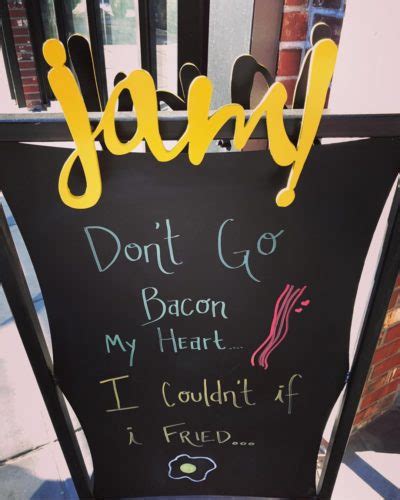 jam!
Don't Go
Bacon
My Heart....
I Couldn't if
i FRIED...